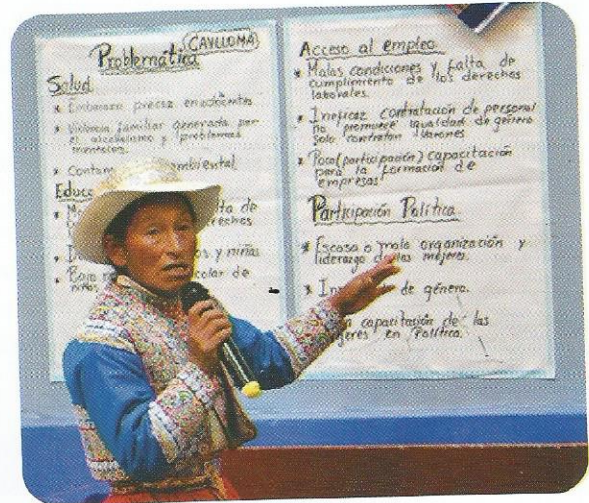 Problemática (CAYLLOMA)
Salud
* Embarazo precoz en adolecentes
* Violencia familiar generada por
el alcoholismo y problemas
mentales.
* Contam ambiental
Educ
* M lta de
rechos
* D os y niñas
* Bajo r colar de
niños
Acceso al empleo
* Malas condiciones y falta de
cumplimiento de los derechos
laborales.
* Ineficaz contratación de personal
no promueve igualdad de género
solo contratan varones
* Poca (participación) capacitación
para la formación de
empresas
Participación Política
* Escasa o mala organización y
liderazgo de las mujeres.
* In de género.
capacitación de las
jeres en Política.